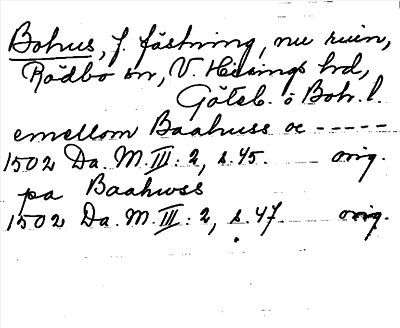 Bohus, f. fästning, nu ruin,
Rödbo sn, V. Hisings hd,
Göteb. o Boh. l.
emellom Baahuss oc -----
1502 Da. M. III: 2, s. 45. orig.
pa Baahwss
1502 Da. M. III: 2, s. 47. orig.